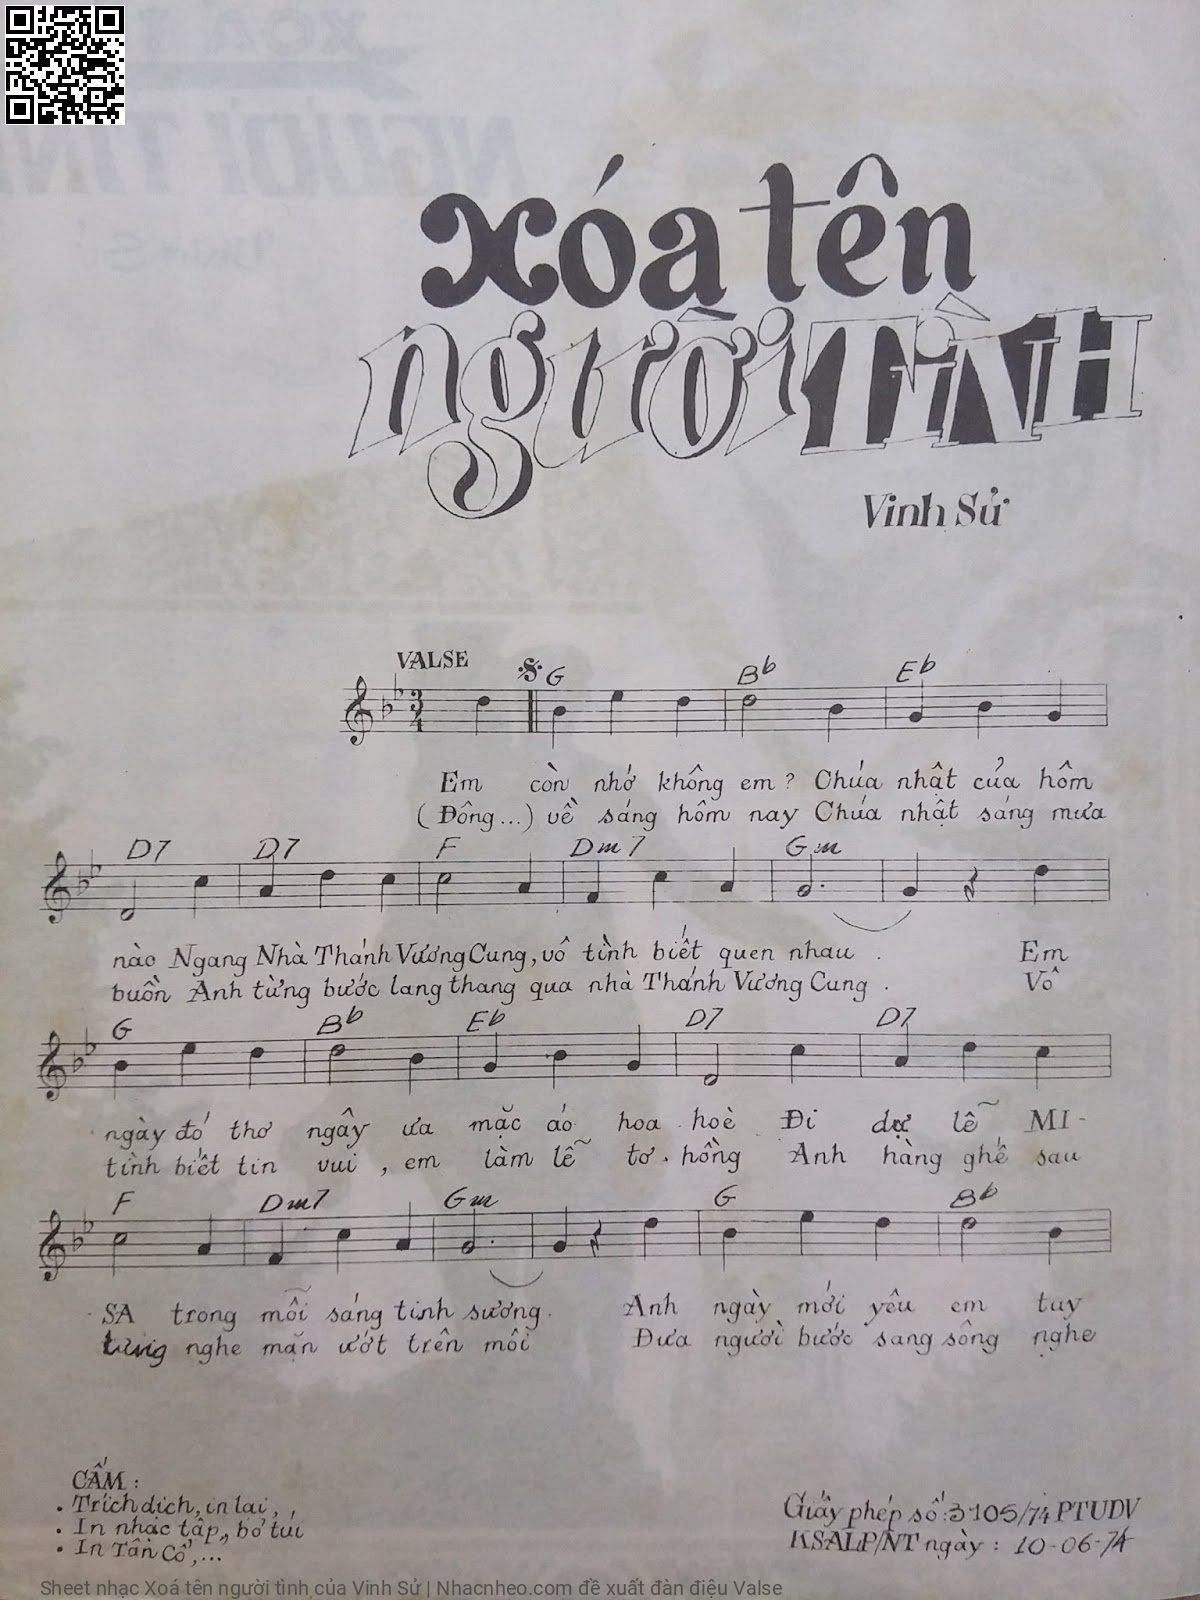 Xóa tên
người TÌNH
Vinh Sử
VALSE
G Bb Eb
3
4
Em còn nhớ không em? Chúa nhật của hôm
(Đông...) về sáng hôm nay Chúa nhật sáng mưa
D7 D7 F Dm7 Gm
nào Ngang Nhà Thánh Vương Cung, vô tình biết quen nhau . Em
buồn Anh từng bước lang thang qua nhà Thánh Vương Cung . Vô
G Bb Eb D7 D7
ngày đó thơ ngây ưa mặc áo hoa hoè Đi dự lễ MI-
tình biết tin vui, em làm lễ tơ hồng Anh hàng ghế sau
F Dm7 Gm G Bb
SA trong mỗi sáng tinh sương. Anh ngày mới yêu em tuy
từng nghe mặn ướt trên môi Đưa người bước sang sông nghe
CẤM :
• Trích dịch, in lại,
• In nhạc tập, bỏ túi
• In Tân Cổ,...
Giấy phép số:3105/74 PTUDV
KSALP/NT ngày : 10-06-74
Sheet nhạc Xoá tên người tình của Vinh Sử | Nhacnheo.com đề xuất đàn điệu Valse